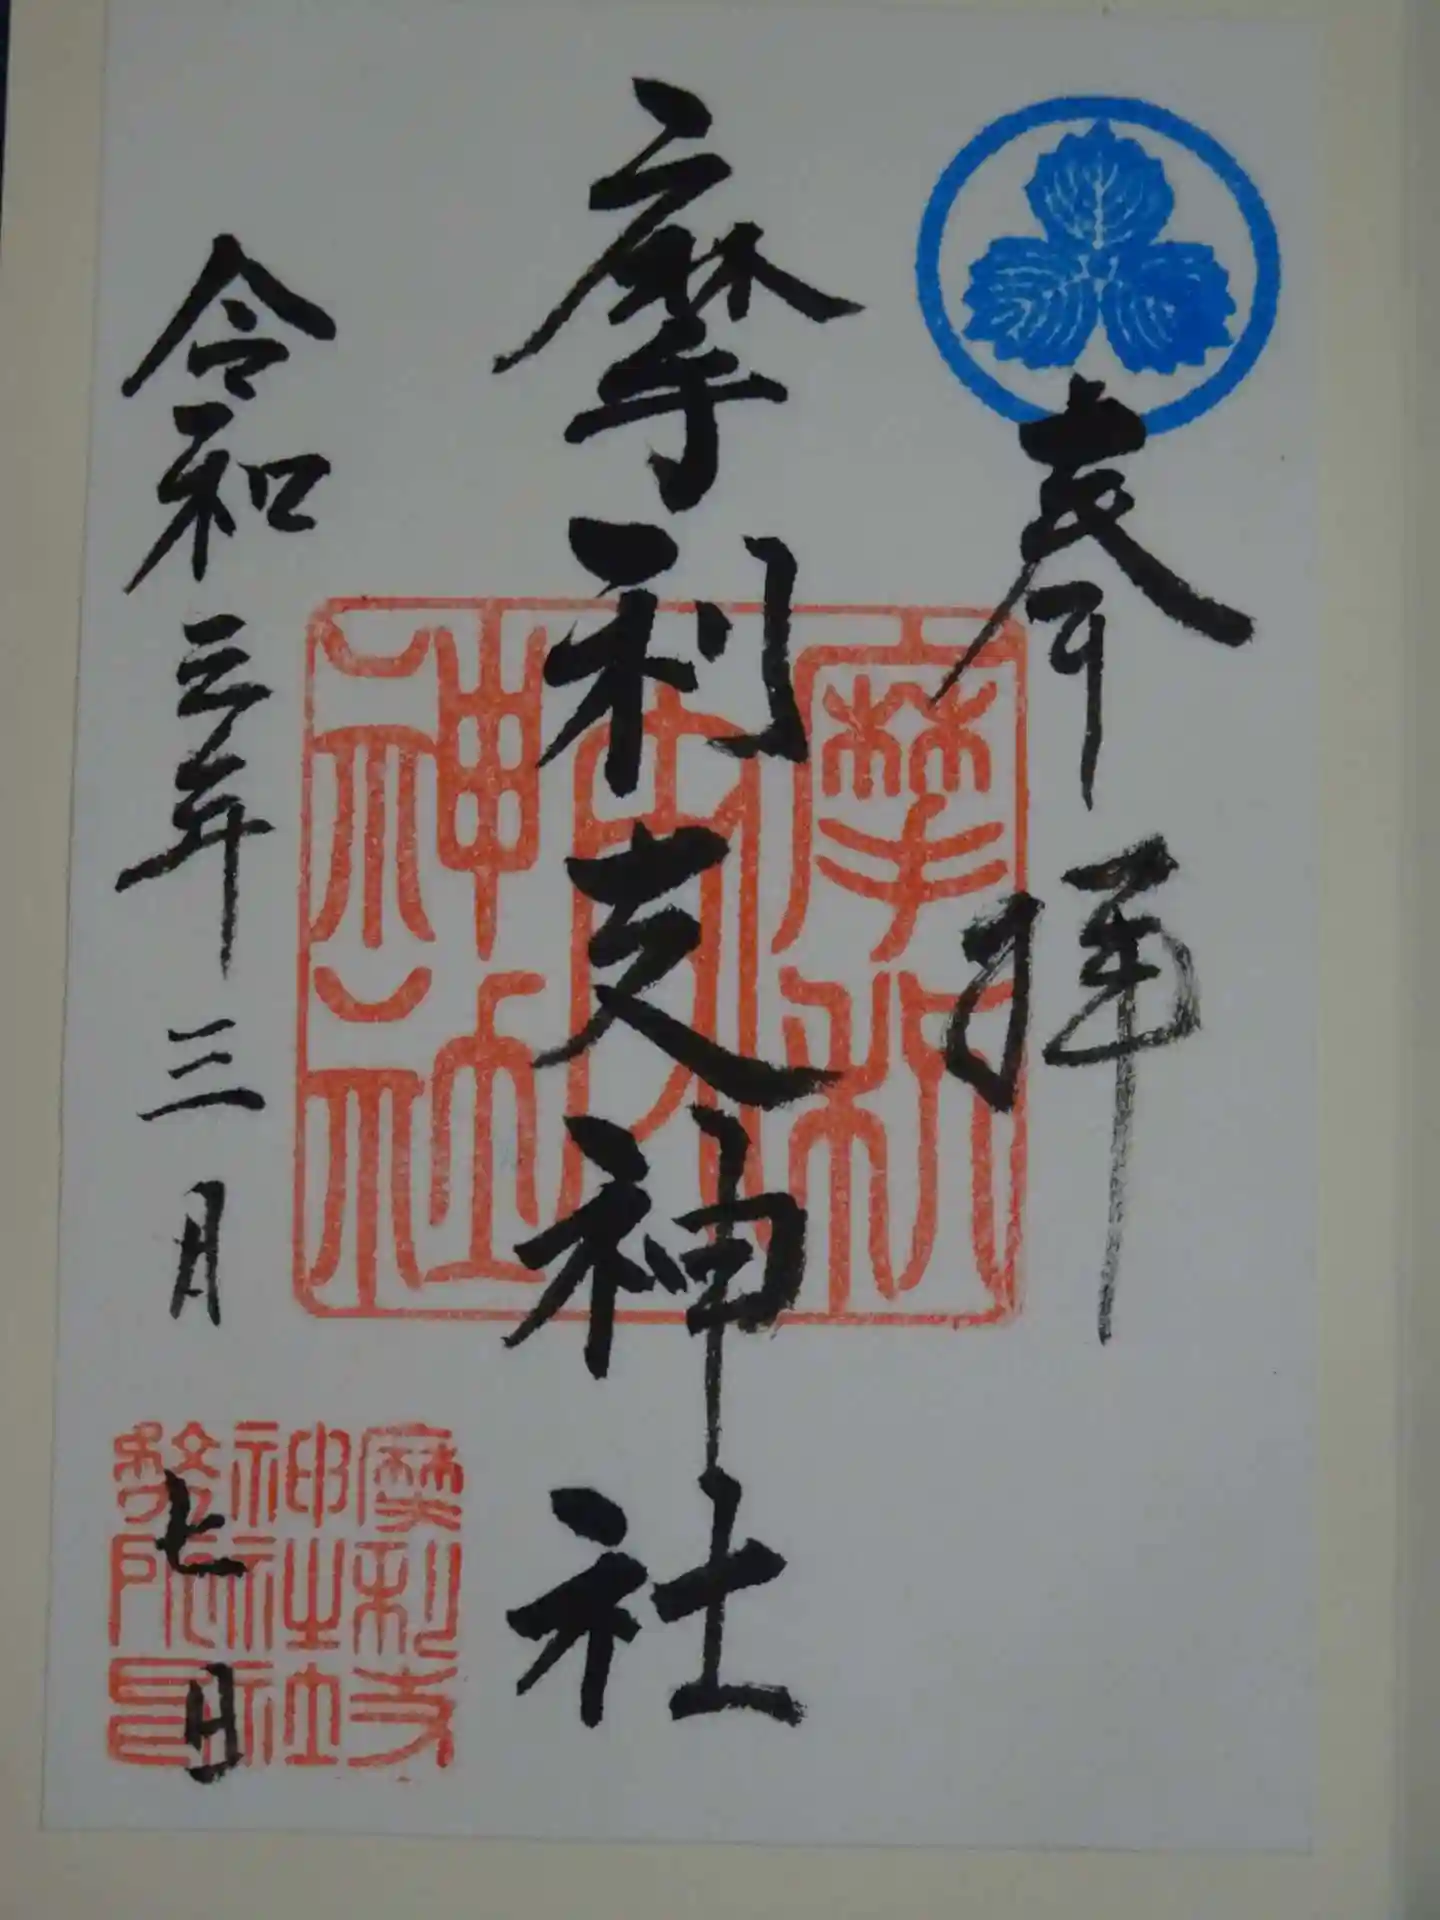 奉拝
摩利支神社
令和三年三月七日
摩利
支
神社
摩利支
神社社
務所印